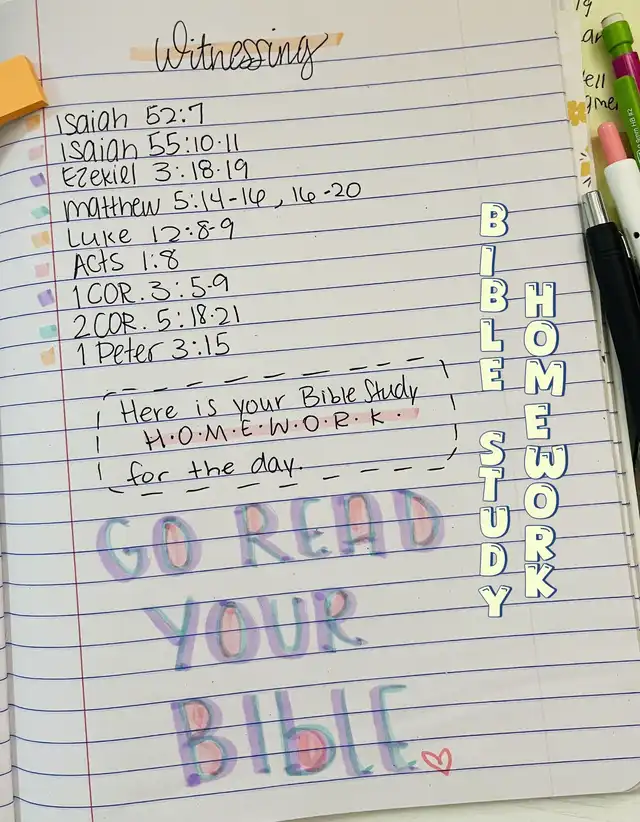 Witnessing
Isaiah 52:7
Isaiah 55:10-11
Ezekiel 3:18-19
Matthew 5:14-16, 16-20
Luke 12:8-9
Acts 1:8
1 COR. 3:5-9
2 COR. 5:18-21
1 Peter 3:15
Here is your Bible Study
H.O.M.E.W.O.R.K.
for the day.
GO READ
YOUR
BIbLE
BIBLE STUDY
HOMEWORK